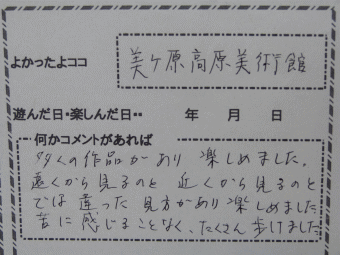 よかったよココ 美ヶ原高原美術館
遊んだ日・楽しんだ日・・ 年 月 日
何かコメントがあれば
多くの作品があり 楽しめました。
遠くから見るのと 近くから見るのと
では違った見方があり楽しめました
苦に感じることなく、たくさん歩けました